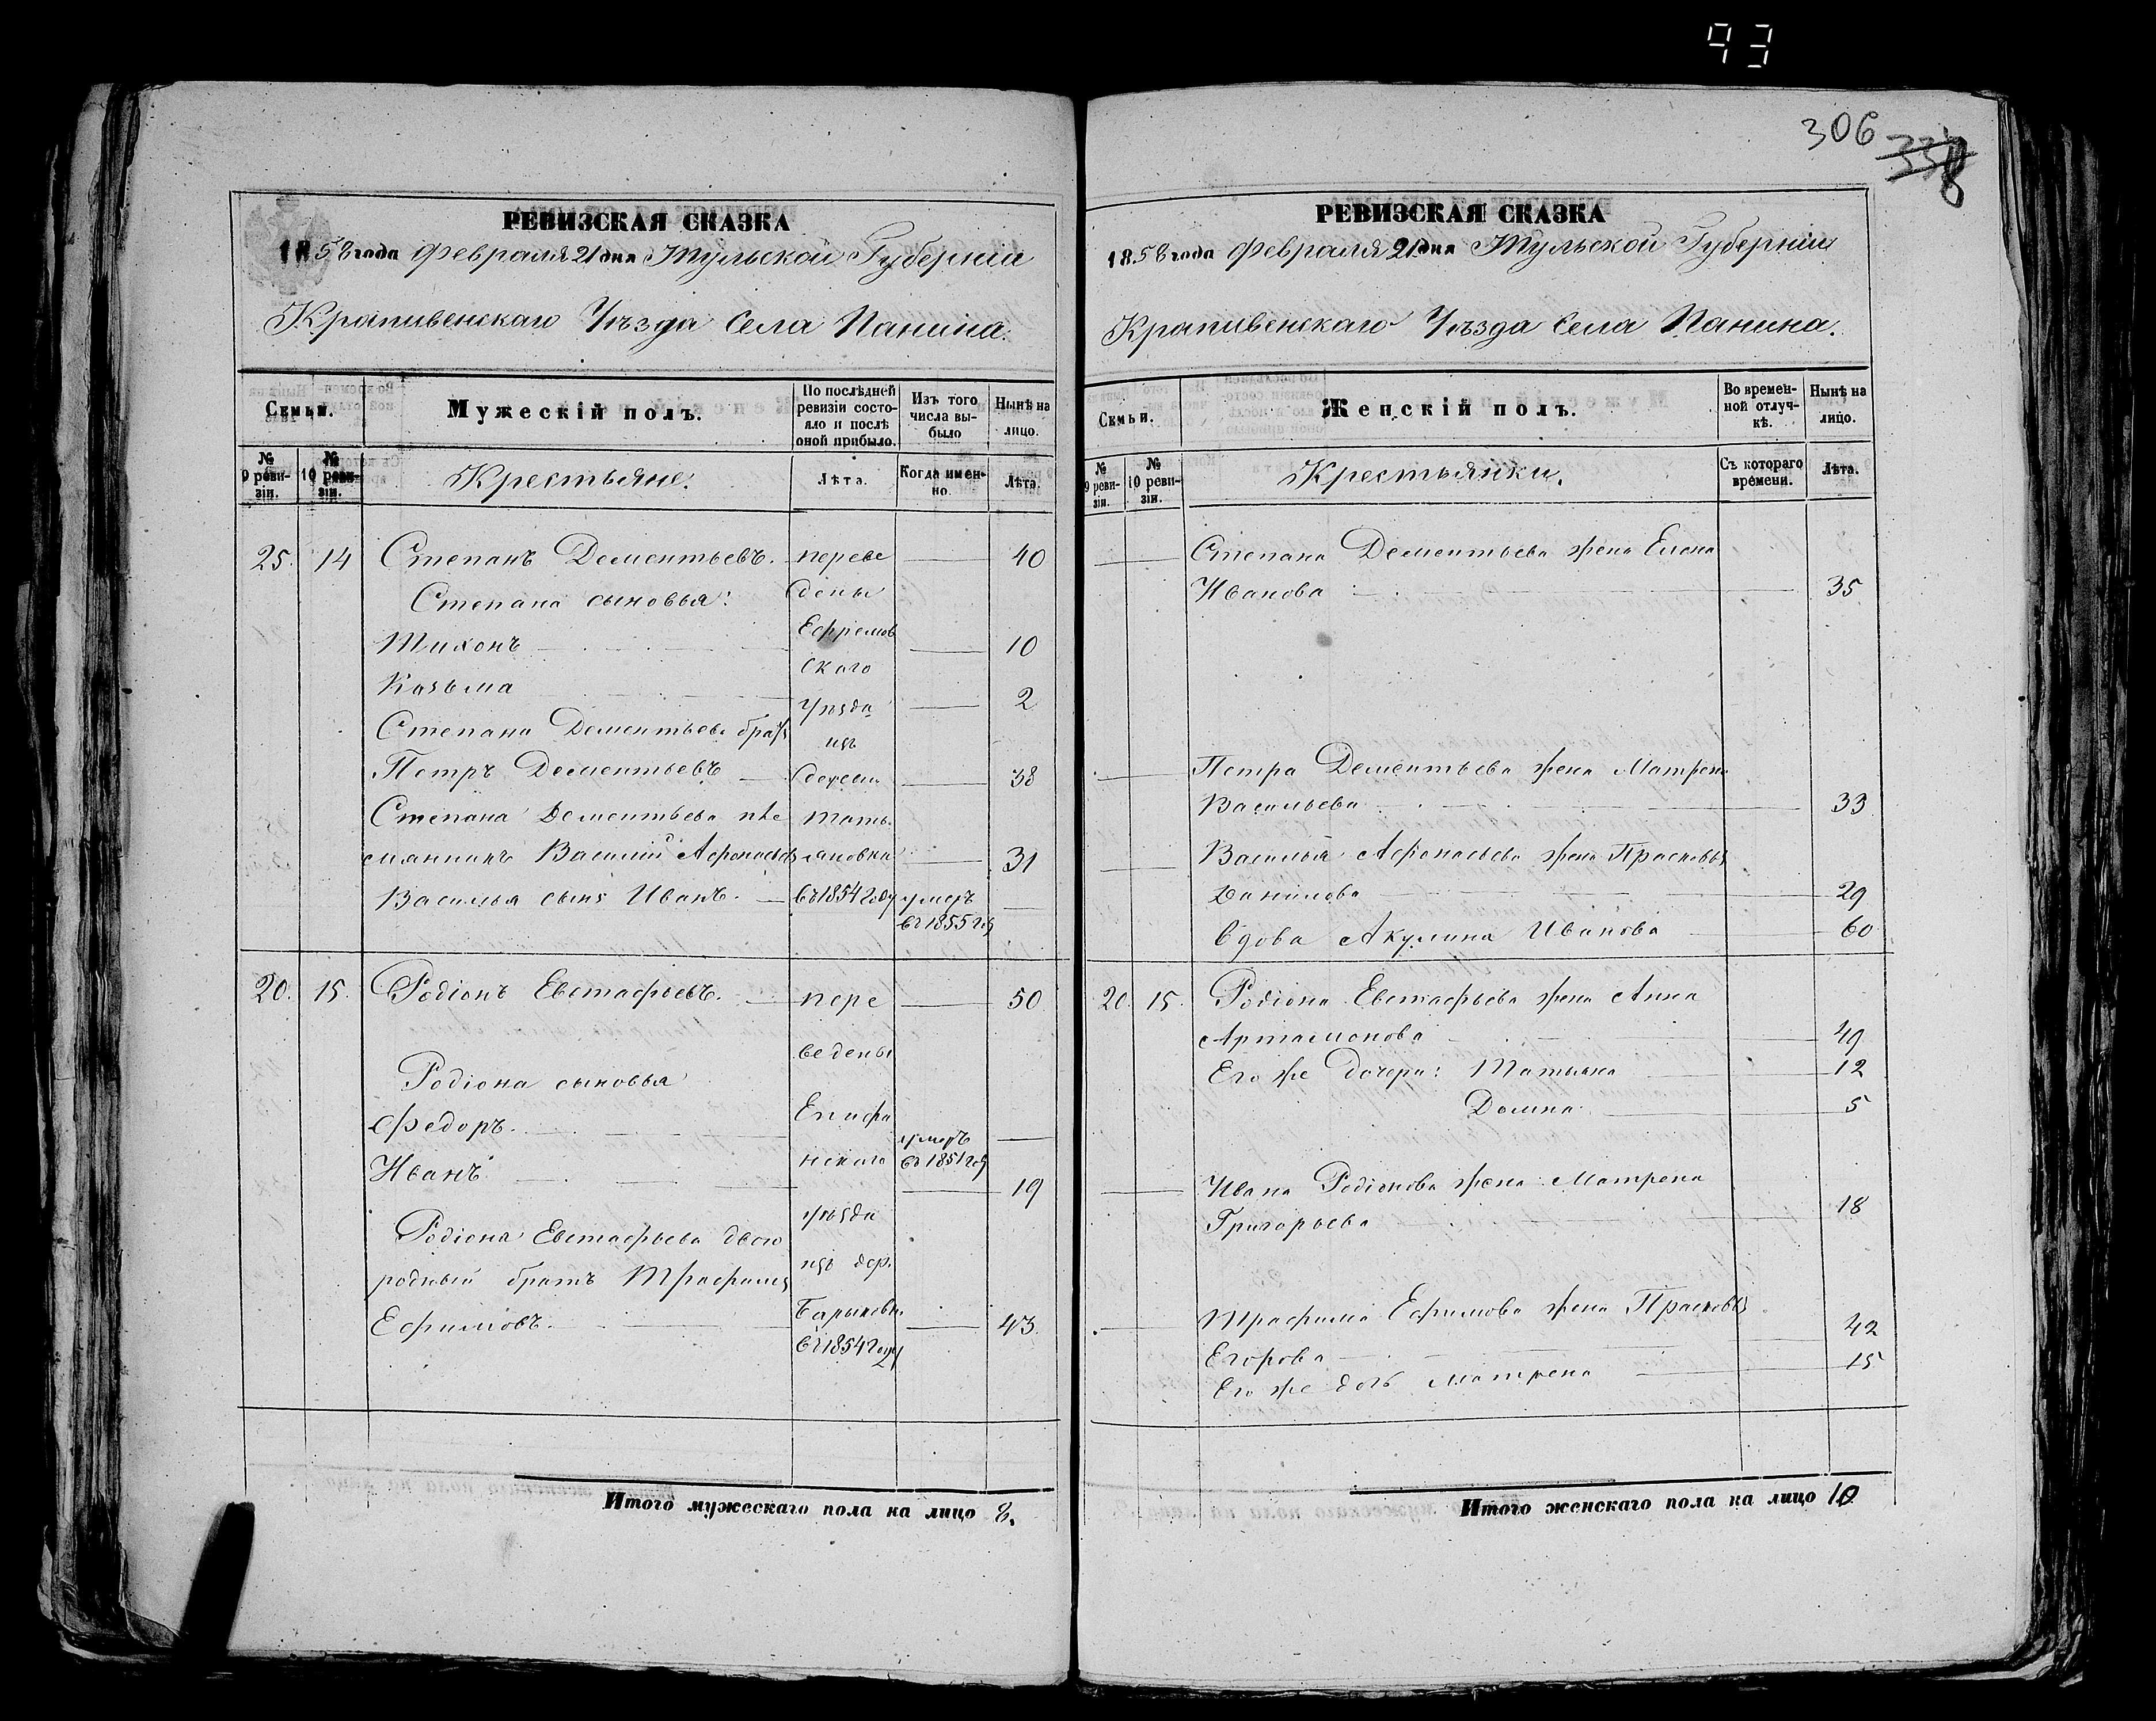 93
306
338
РЕВИЗСКАЯ СКАЗКА
1858 года Февраля 21 дня Тульской Губерніи
Крапивенскаго Уѣзда Села Панина.
Семьи. Мужескій полъ. По послѣдней ревизіи состояло и послѣ оной прибыло. Изъ того числа выбыло Нынѣ на лицо.
№ 9 ревизіи. № 10 ревизіи. Крестьяне. Лѣта. Когда именно. Лѣта.
25. 14 Степанъ Дементьевъ. переве 40
Степана сыновья: дены
Тихонъ Ефремов 10
скаго
Козьма уѣзда 2
Степана Дементьева братъ изъ
Петръ Дементьевъ 38
Степана Дементьева пле Тать
мянникъ Василий Афонасьевъ яновки 31
Василья сынъ Иванъ. въ 1854 году умеръ
въ 1855 год
20. 15. Родіонъ Евстафьевъ. пере 50
ведены
Родіона сыновья
Федоръ. Епифа умеръ
Иванъ нскаго въ 1851 год 19
уѣзда
Родіона Евстафьева двою
родный братъ Трафимъ изъ дер.
Ефимовъ. 43.
въ 1854 году
Итого мужескаго пола на лицо 8.
РЕВИЗСКАЯ СКАЗКА
1858 года Февраля 21 дня Тульской Губерніи
Крапивенскаго Уѣзда Села Панина.
Семьи. Женскій полъ. Во временной отлучкѣ. Нынѣ на лицо.
№ 9 ревизіи. № 10 ревизіи. Крестьянки. Съ котораго времени. Лѣта.
Степана Дементьева жена Елена
Иванова 35
Петра Дементьева жена Матрена
Васильева 33
Василья Афонасьева жена Прасковья
Данилова 29
Вдова Акулина Иванова 60
20. 15. Родіона Евстафьева жена Анна
Артамонова 49
Его же дочери: Татьяна 12
Домна 5
Ивана Родіонова жена Матрена
Григорьева 18
Трафима Ефимова жена Прасковья
Егорова 42
Его же дочь Матрена 15
Итого женскаго пола на лицо 10